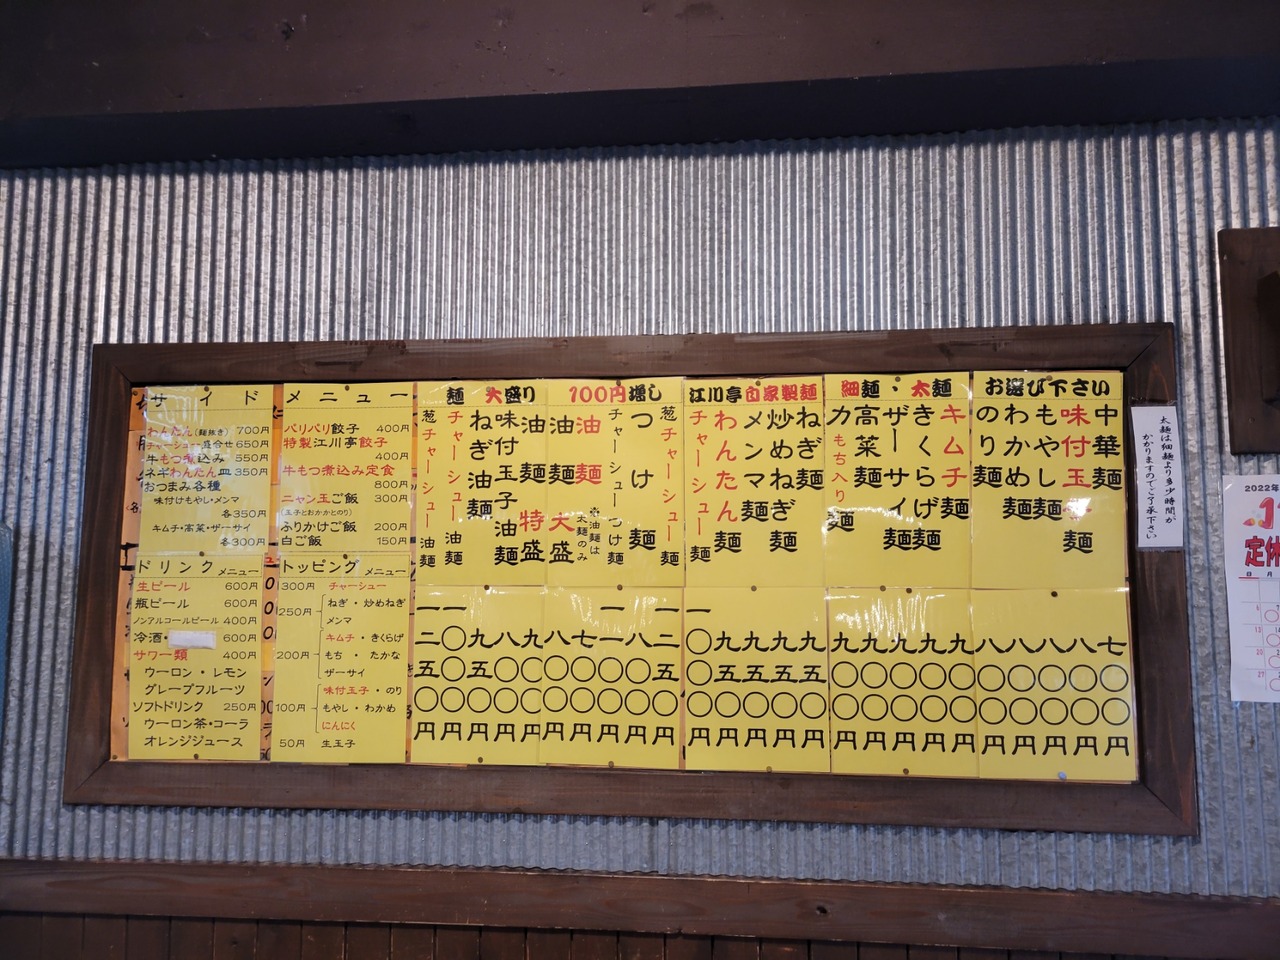 サイドメニュー
わんたん(麺抜き) 700円
チャーシュー盛合せ 650円
牛もつ煮込み 550円
ネギわんたん皿 350円
おつまみ各種
味付けもやし・メンマ
各350円
キムチ・高菜・ザーサイ
各300円
パリパリ餃子 400円
特製江川亭餃子
400円
牛もつ煮込み定食
800円
ニャン玉ご飯 300円
(玉子とおかかとのり)
ふりかけご飯 200円
白ご飯 150円
ドリンクメニュー
生ビール 600円
瓶ビール 600円
ノンアルコールビール 400円
冷酒・ 600円
サワー類 400円
ウーロン・レモン
グレープフルーツ
ソフトドリンク 250円
ウーロン茶・コーラ
オレンジジュース
トッピングメニュー
300円 チャーシュー
250円 ねぎ・炒めねぎ
メンマ
200円 キムチ・きくらげ
もち・たかな
ザーサイ
100円 味付玉子・のり
もやし・わかめ
にんにく
50円 生玉子
麺 大盛り 100円増し 江川亭自家製麺 細麺・太麺 お選び下さい
中華麺 七〇〇円
味付玉子麺 八〇〇円
もやし麺 八〇〇円
わかめ麺 八〇〇円
のり麺 八〇〇円
キムチ麺 九〇〇円
きくらげ麺 九〇〇円
ザーサイ麺 九〇〇円
高菜麺 九〇〇円
力もち入り麺 九〇〇円
ねぎ麺 九五〇円
炒めねぎ麺 九五〇円
メンマ麺 九五〇円
わんたん麺 九五〇円
チャーシュー麺 一〇〇〇円
葱チャーシュー麺 一二五〇円
つけ麺 八〇〇円
チャーシューつけ麺 一一〇〇円
※油麺は太麺のみ
油麺 七〇〇円
油麺大盛 八〇〇円
油麺特盛 九〇〇円
味付玉子油麺 八〇〇円
ねぎ油麺 九五〇円
チャーシュー油麺 一〇〇〇円
葱チャーシュー油麺 一二五〇円
太麺は細麺より多少時間が
かかりますのでご了承下さい
2022年
定休
日 月
6
13
20
27